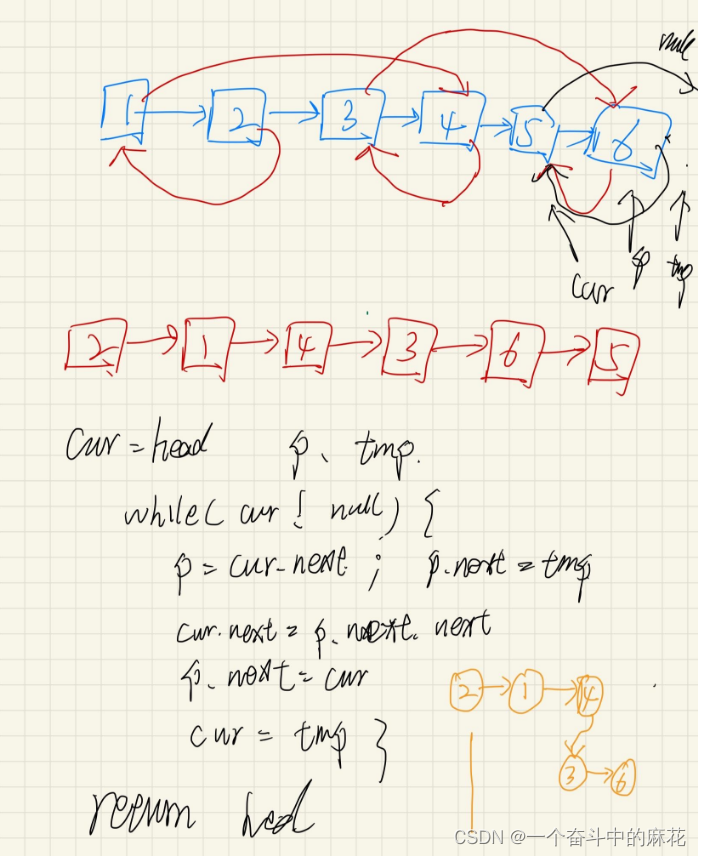 null
1 2 3 4 5 6
cur p tmp
2 1 4 3 6 5
cur = head p、 tmp.
while( cur ! null) {
p = cur.next ; p.next = tmp
cur.next = p.next.next
p.next = cur
cur = tmp }
return head
2 1 4
3 6
CSDN @一个奋斗中的麻花